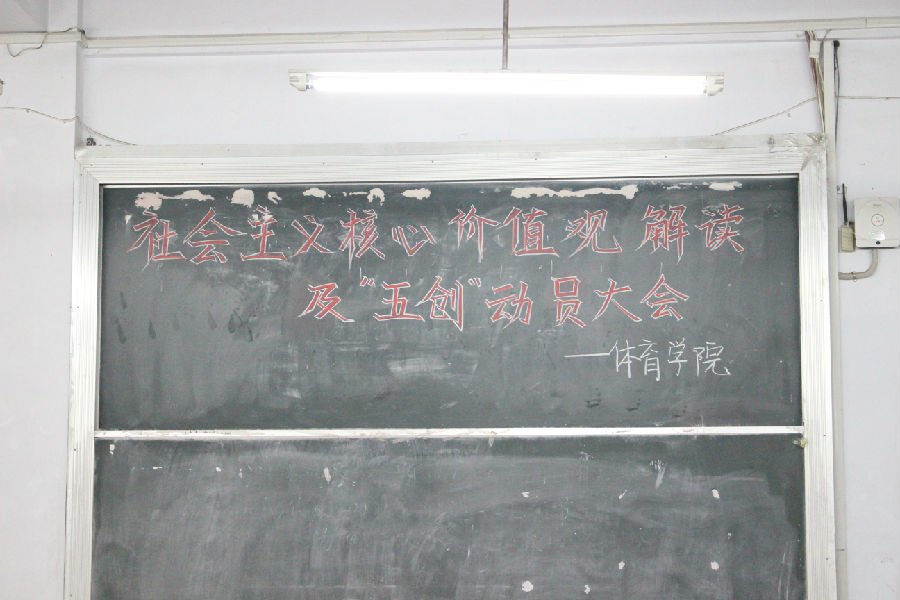 社会主义核心价值观解读
及"五创"动员大会
—体育学院